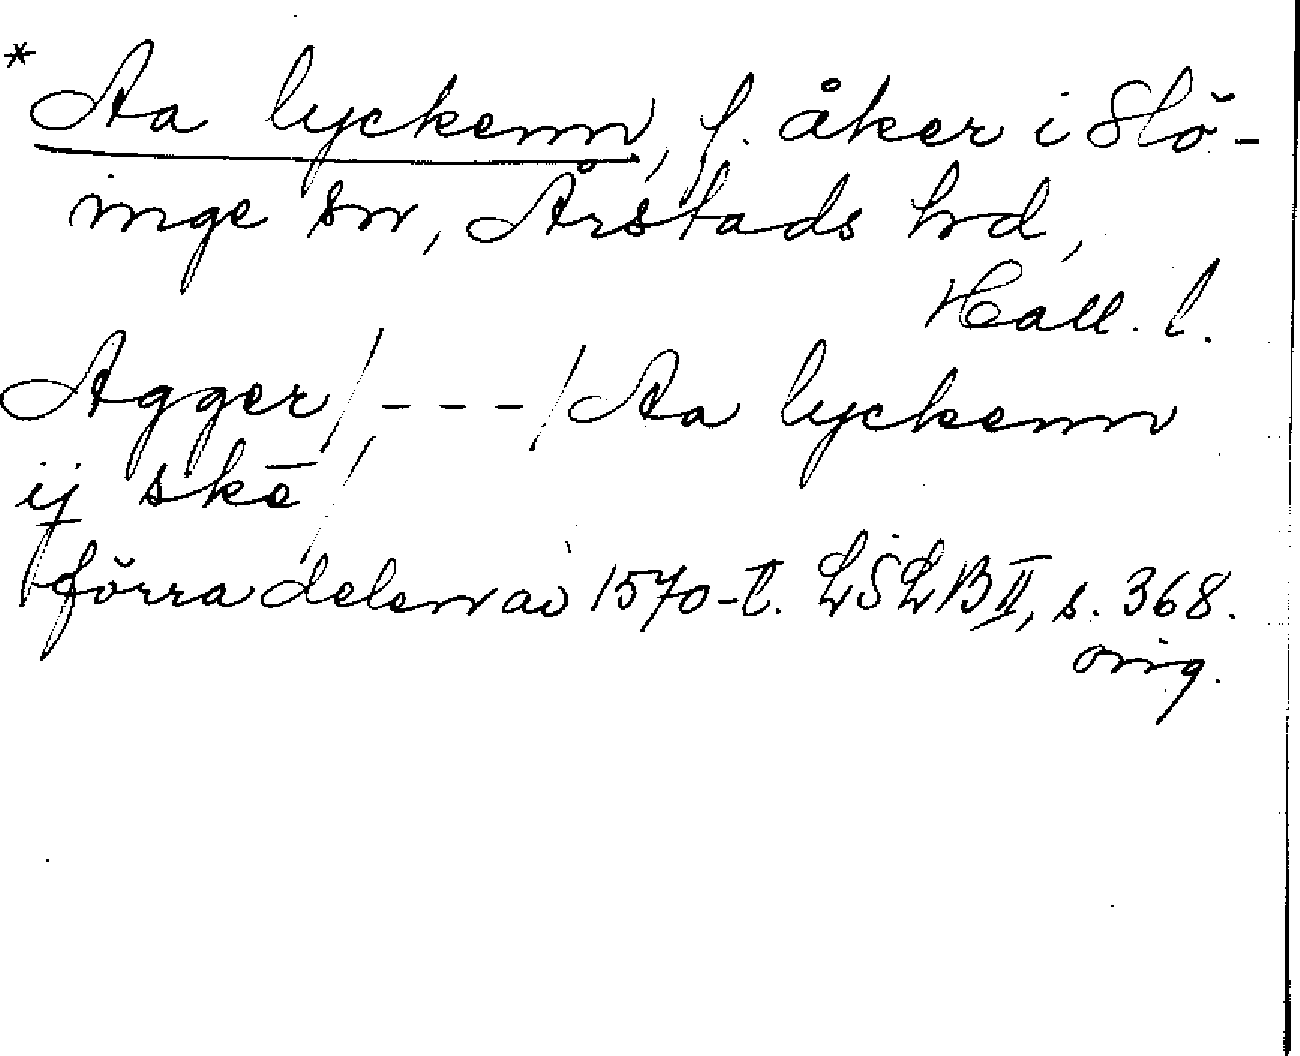 * Aa lyckenn, f. åker i Slö-
inge sn, Årstads hd,
Hall. l.
Agger/---/Aa lyckenn
ij skē/
förra delen av 1570-t. LSLB II, s. 368.
orig.